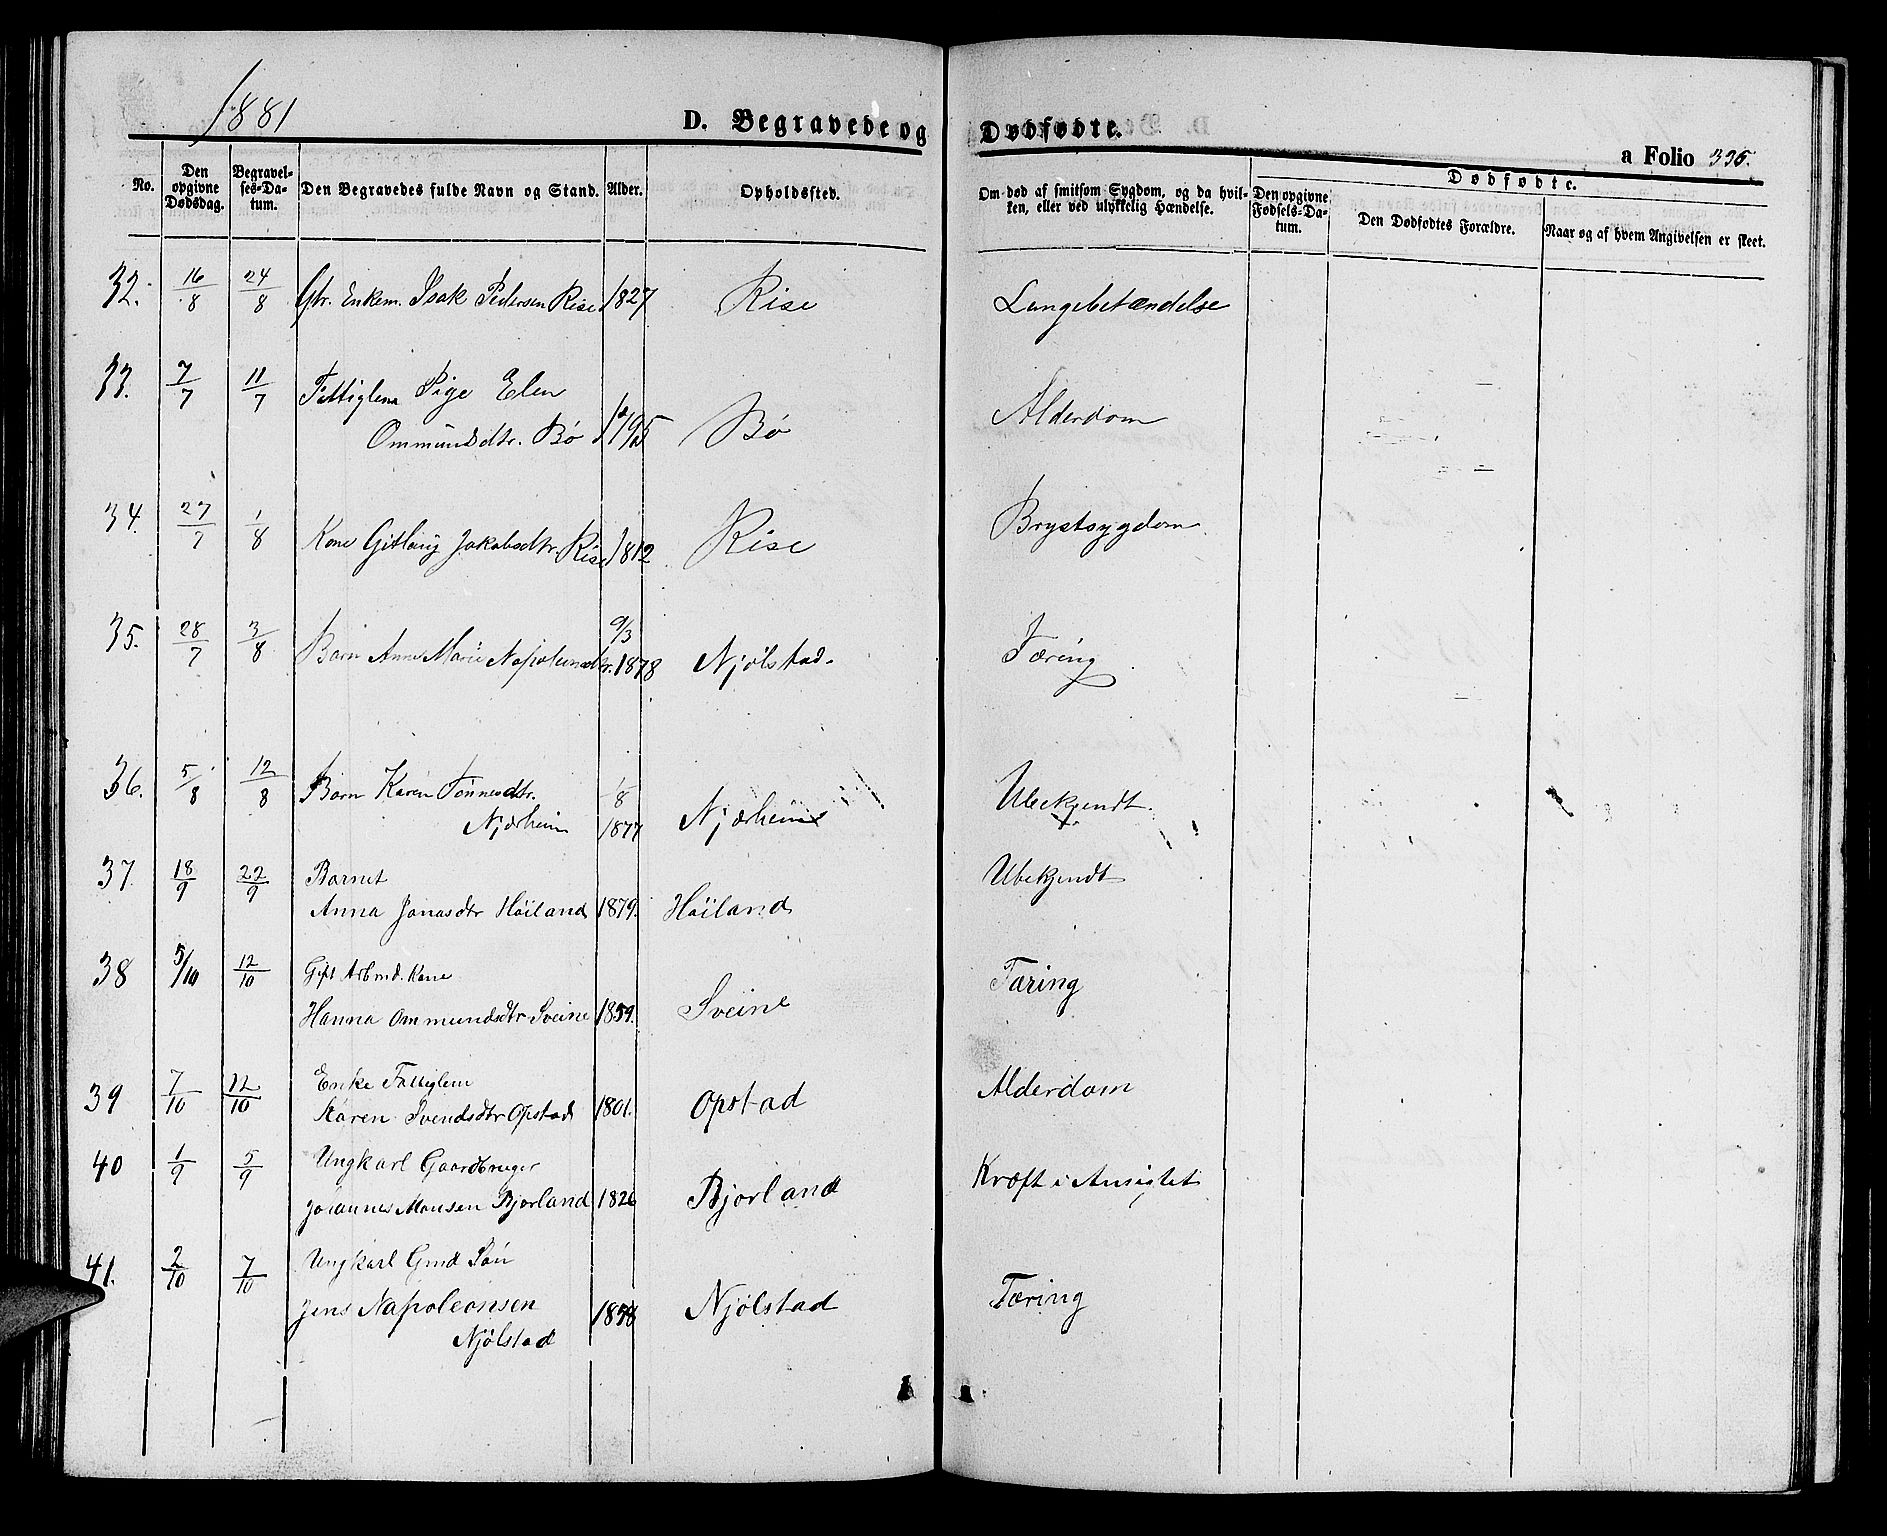 1881
D. Begravede og Dødfødte.
a Folio 335.
No. | Den opgivne Dødsdag. | Begravelses-Datum. | Den Begravedes fulde Navn og Stand. | Alder. | Opholdssted. | Om død af smitsom Sygdom, og da hvilken, eller ved ulykkelig Hændelse. | Den opgivne Fødsels-Datum. | Dødfødte. | Den Dødfødtes Forældre. | Naar og af hvem Angivelsen er skeet.
32. 16/8 24/8 Gbr. Enkem. Isak Pedersen Rise 1827 Rise Lungebetændelse
33. 7/7 11/7 Fattiglem Pige Elen
Ommundsdtr. Bø 1795 Bø Alderdom
34. 27/7 1/8 Kone Gitlaug Jakobsdtr. Rise 1812 Rise Brystsygdom
35. 28/7 3/8 Barn Anne Marie Napoleonsdtr. 9/3 1878 Njølstad. Tæring
36. 5/8 12/8 Barn Karen Tønnesdtr.
Njærheim 1/8 1877 Njærheim Ubekjendt.
37. 18/9 22/9 Barnet
Anna Jonasdtr Høiland 1879. Høiland Ubekjendt
38 5/10 12/10 Gift Arbmd. Kone
Hanna Ommundsdtr Sveine 1859. Sveine Tæring
39 7/10 12/10 Enke Fattiglem
Karen Svendsdtr Opstad 1801. Opstad Alderdom
40 1/9 5/9 Ungkarl Gaardbruger
Johannes Monsen Bjorland 1826 Bjorland Kræft i Ansigtet
41. 2/10 7/10 Ungkarl Gmd Søn
Jens Napoleonsen
Njølstad Njølstad Tæring